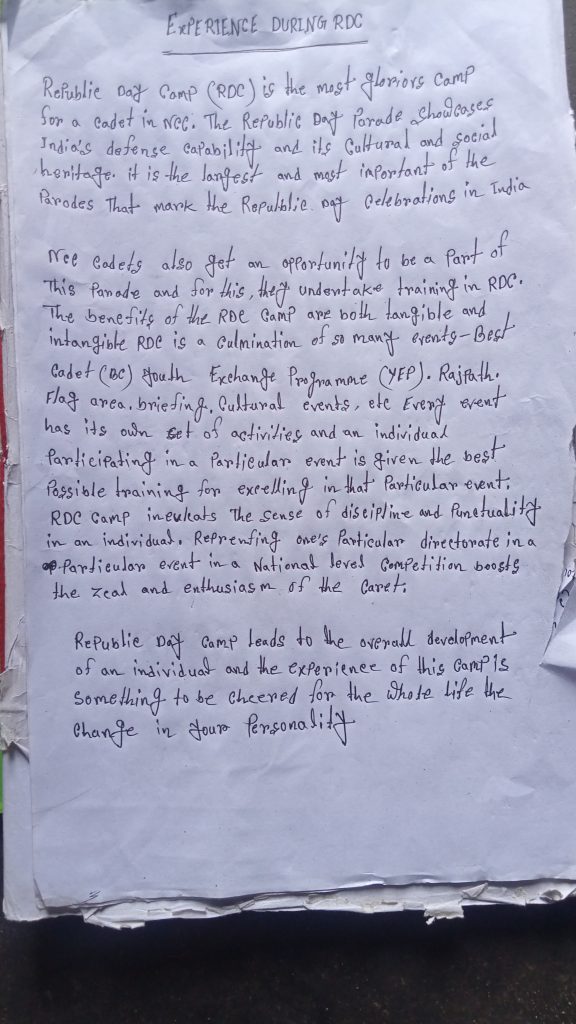 EXPERIENCE DURING RDC
Republic Day Camp (RDC) is the most gloriors Camp
for a cadet in NCC. The Republic Day Parade Showcases
India's defense capability and its Cultural and social
heritage. it is the largest and most important of the
Parodes That mark the Repulblic Day Celebrations in India
Ncc Cadets also get an opportunity to be a Part of
This Parade and for this, they undertake training in RDC.
The benefits of the RDC Camp are both tangible and
intangible RDC is a Culmination of so many events-Best
Cadet (BC) Youth Exchange Programme (YEP). Rajpath.
Flag area, briefing, Cultural events, etc Every event
has its own set of activities and an individual
Participating in a Particular event is given the best
Possible training for excelling in that Particular event.
RDC Camp inculcats The sense of discipline and Punctuality
in an individual. Reprenting one's Particular directorate in a
Particular event in a National level Competition boosts
the zeal and enthusiasm of the Caret.
Republic Day Camp leads to the overall development
of an individual and the experience of this Camp is
Something to be cheered for the whole life the
Change in your Personality